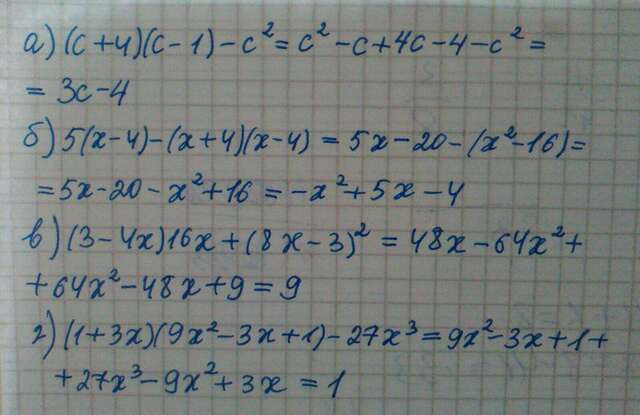 а) (c+4)(c-1)-c² = c²-c+4c-4-c² =
= 3c-4
б) 5(x-4)-(x+4)(x-4) = 5x-20-(x²-16)=
=5x-20-x²+16 = -x²+5x-4
в) (3-4x)16x+(8x-3)² = 48x-64x²+
+64x²-48x+9=9
г) (1+3x)(9x²-3x+1)-27x³=9x²-3x+1+
+27x³-9x²+3x = 1